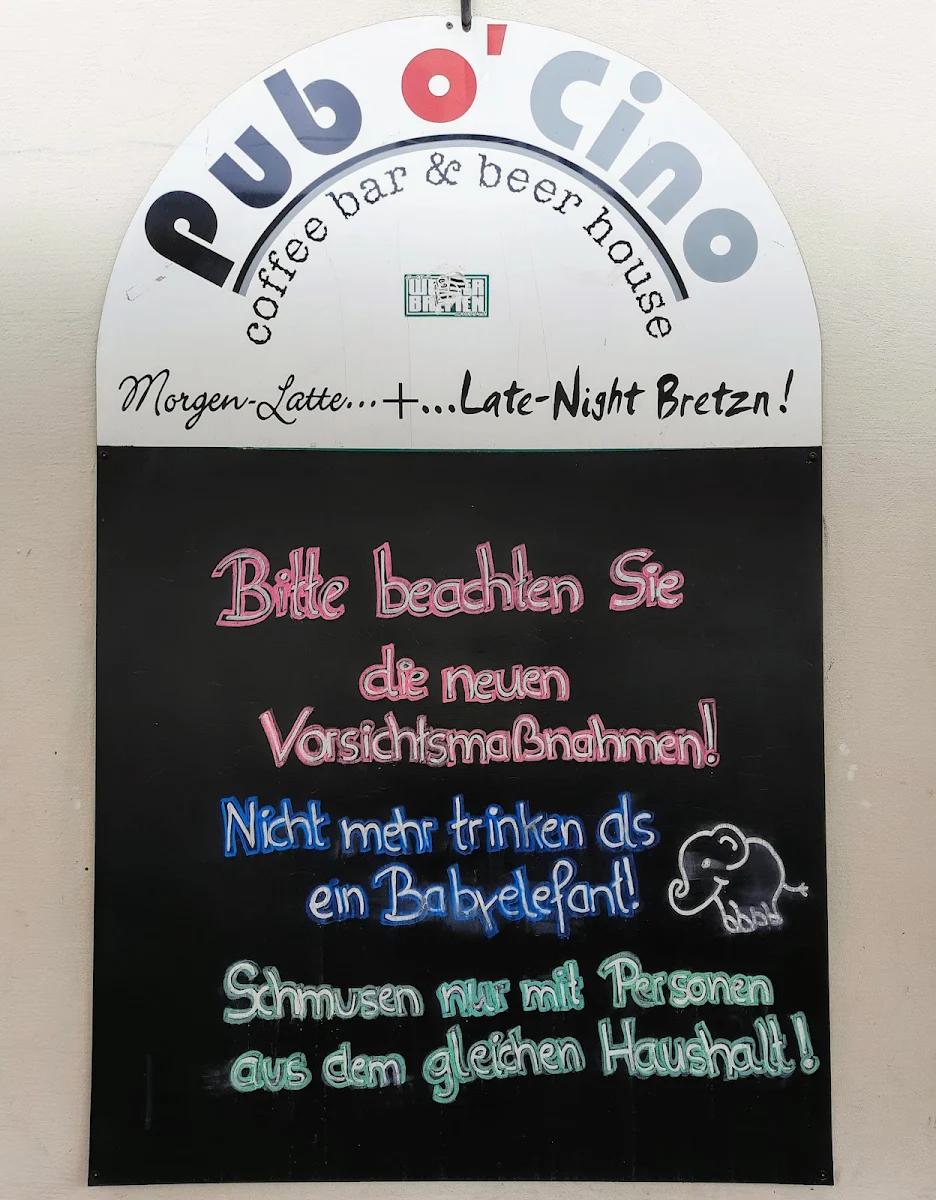 Pub o' Cino
coffee bar & beer house
Morgen-Latte...+...Late-Night Bretzn!
Bitte beachten Sie
die neuen
Vorsichtsmaßnahmen!
Nicht mehr trinken als
ein Babyelefant!
Schmusen nur mit Personen
aus dem gleichen Haushalt!